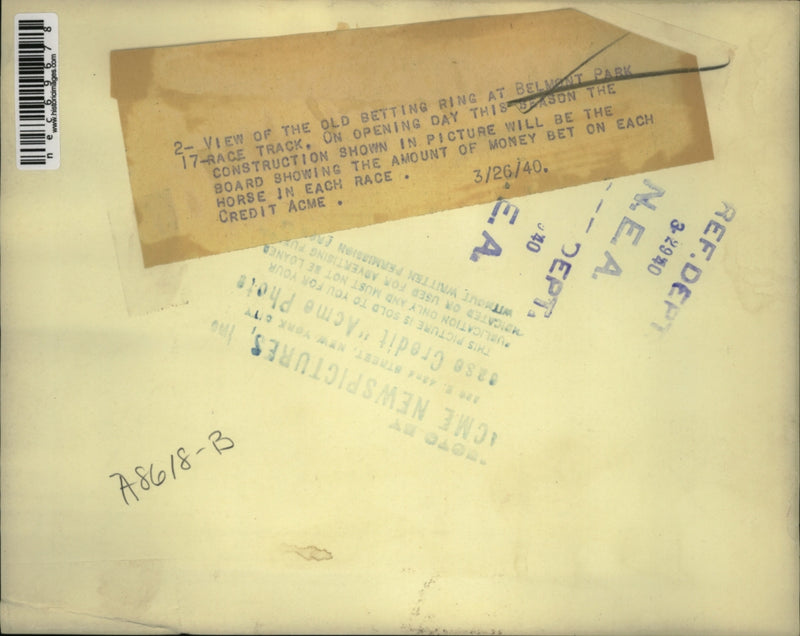 nec69678
www.historicimages.com
2- VIEW OF THE OLD BETTING RING AT BELMONT PARK
17-RACE TRACK. ON OPENING DAY THIS SEASON THE
CONSTRUCTION SHOWN IN PICTURE WILL BE THE
BOARD SHOWING THE AMOUNT OF MONEY BET ON EACH
HORSE IN EACH RACE . 3/26/40.
CREDIT ACME .
N.E.A.
REF. DEPT.
3-29 40
N.E.A.
DEPT.
40
E.A.
ACME NEWSPICTURES, Inc
42nd STREET, NEW YORK CITY
Credit "Acme Photo
THIS PICTURE IS SOLD TO YOU FOR YOUR
PUBLICATION ONLY AND MUST NOT BE LOANED
OR USED FOR ADVERTISING
WITHOUT WRITTEN PERMISSION
A8618-B